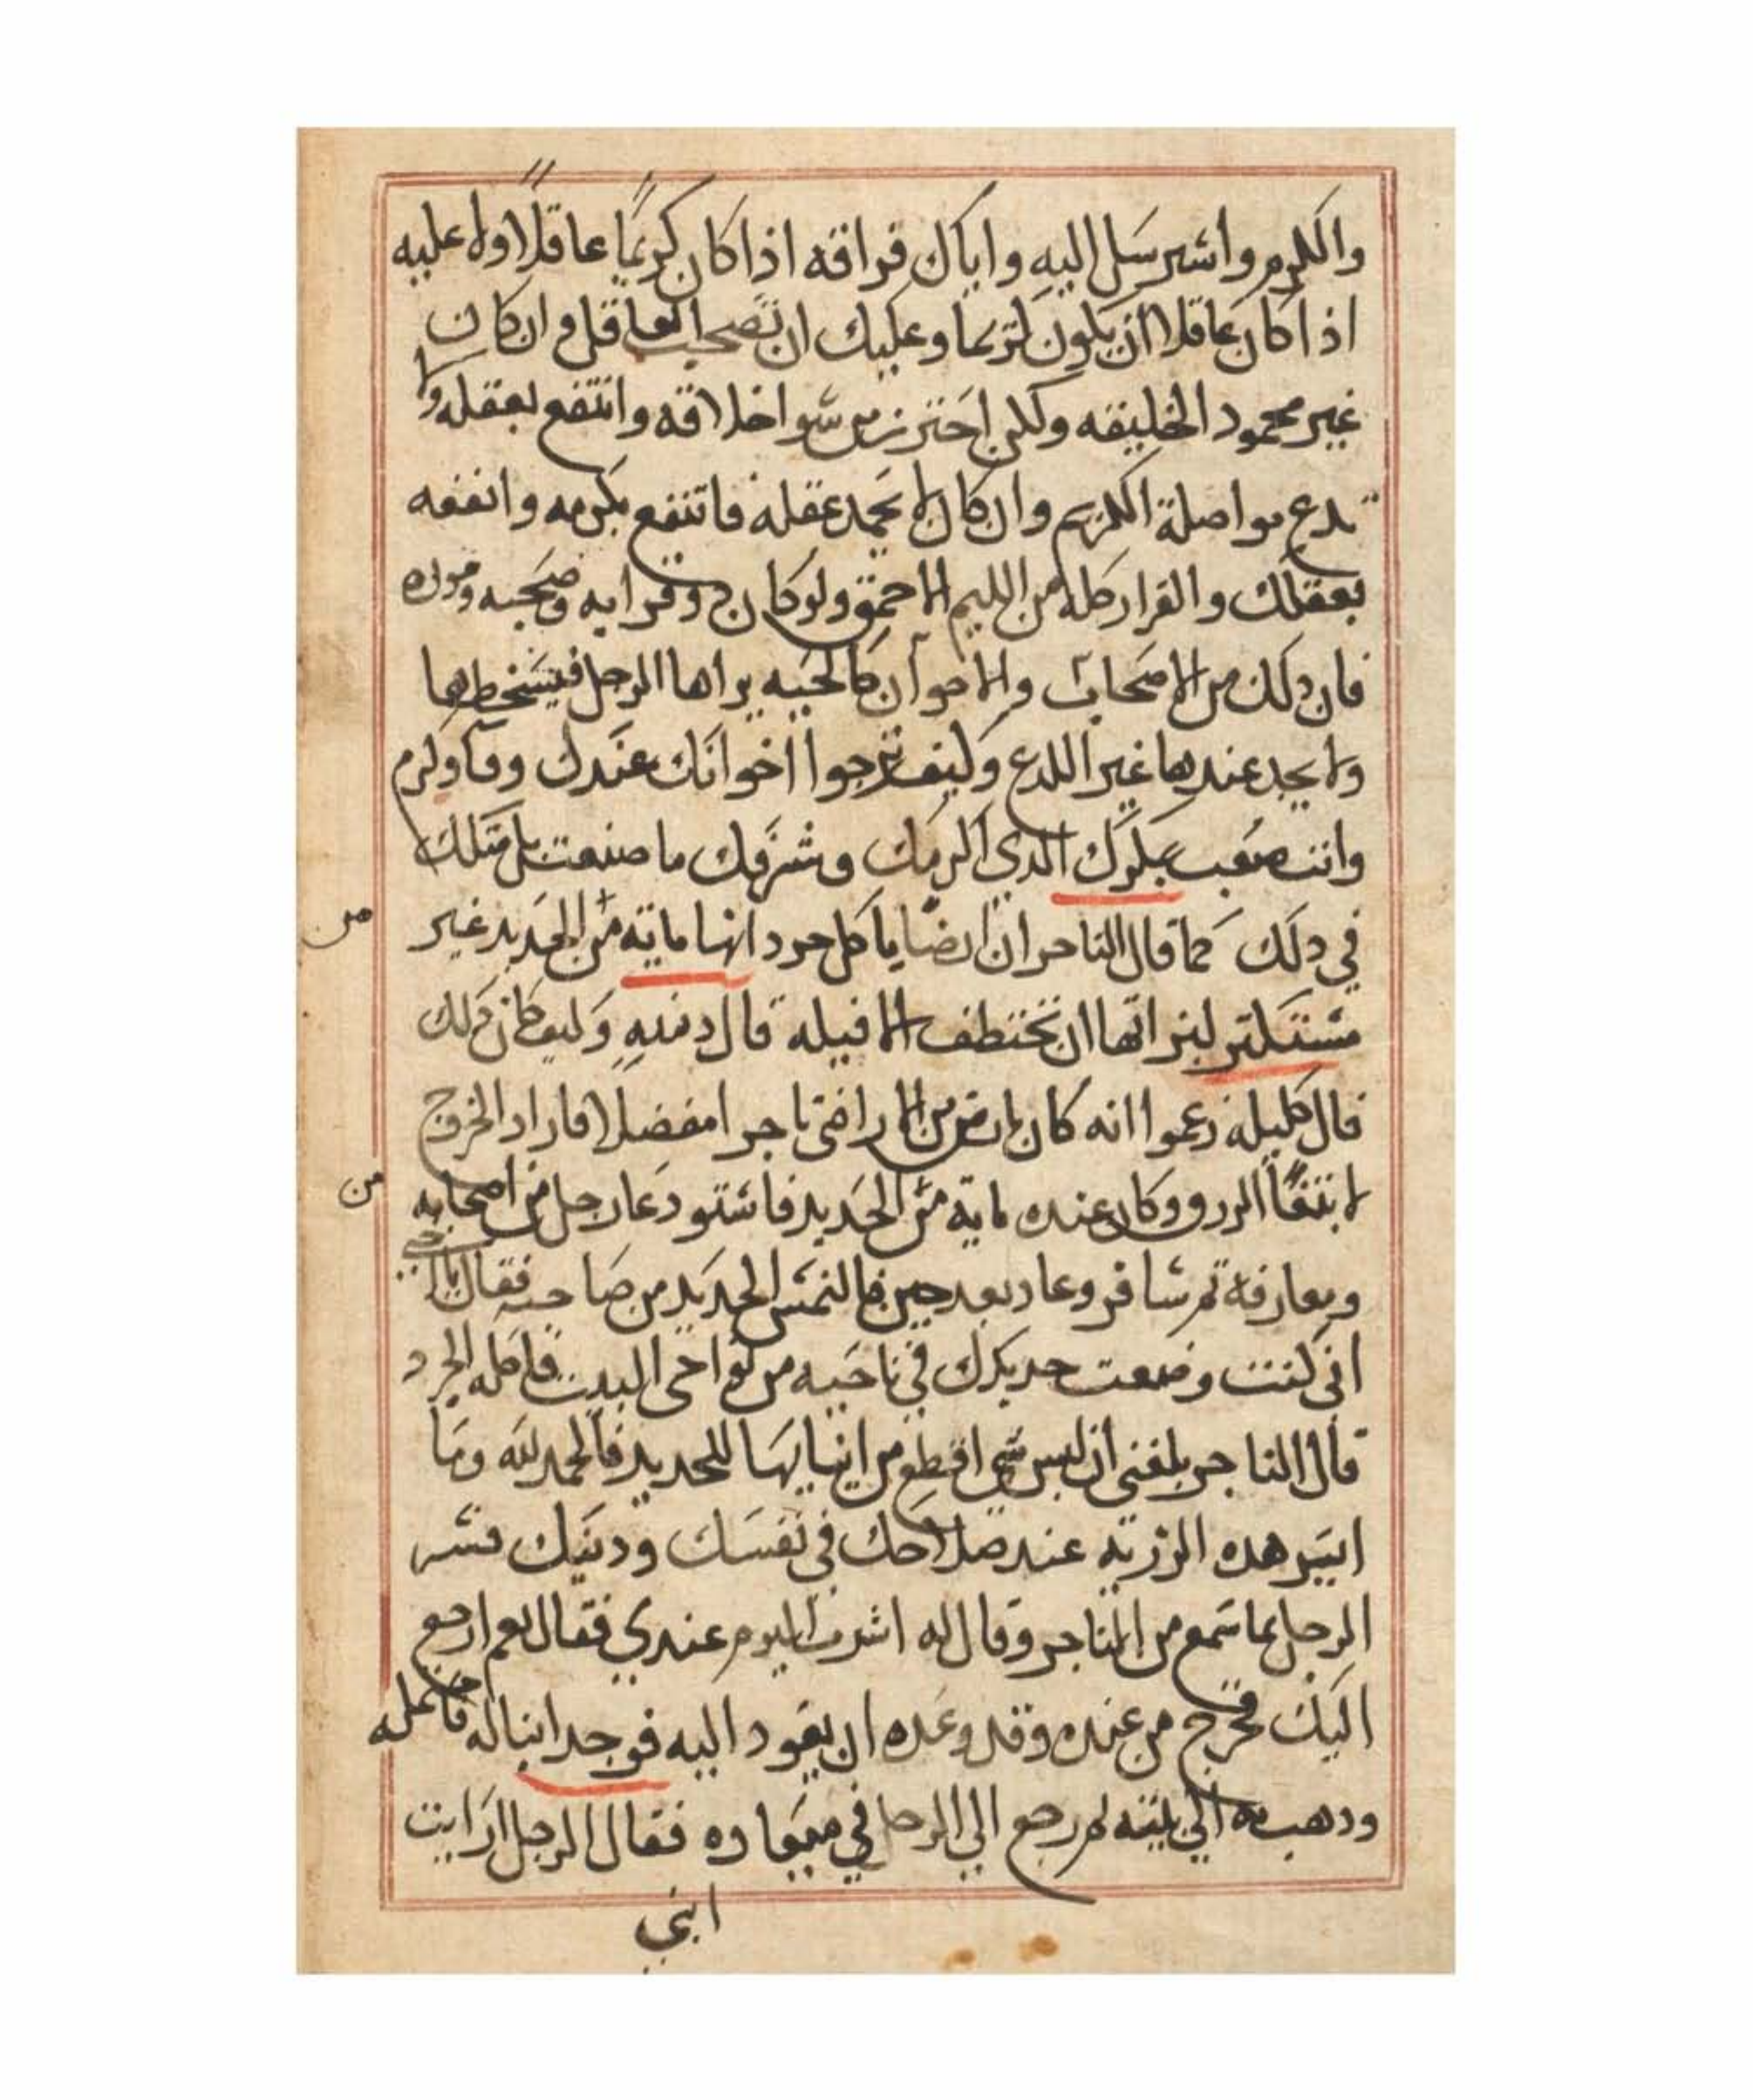 والكرم واشترسل اليه واياك فراقه اذا كان كريمًا عاقلًا ولا عليه
اذا كان عاقلا أن يكون كريما وعليك ان تصحب العاقل وان كان
غير محمود الخليقه ولكن احترز من سوا اخلاقه وانتفع بعقله ولا
تدع مواصلة الكريم وان كان لا يحمد عقله فاتنفع بكرمه وانفعه
بعقلك والفرار كله من الليم الاحمق ولو كان دو قرابه وصحبه
فان دلك من الاصحاب والاخوان كالحيه يراها الرجل فيسخطها
ولا يجد عندها غير اللدع وكيف ترجوا اخوانك عندك وفا وكرم
وانت صنعت بملكك الدي اكرمك وشرفك ما صنعت بل مثلك
في دلك كما قال التاجر ان ارضًا ياكل جردانها مايه من الحديد غير
من
مستنكر لبزاتها ان تختطف الافيله قال دمنه وكيف كان دلك
قال كليله زعموا انه كان بارض من الاراضى تاجرا مفضلا فاراد الخروج
لابتغاً الرزو وكان عنده مايه من الحديد فاستودعا رجل من اصحابه
من
ومعارفه تم سافر وعاد بعد حين فالتمس الحديد من صاحبه فقال يا اخي
انى كنت وضعت حديدك في ناحيه من نواحى البيت فاكله الجرد
قال التاجر بلغنى أن ليس شي اقطع من انيابها للحديد فالحمد لله وما
ايسر هده الرزيه عند صلاحك في نفسك ودينك فسر
الرجل بما سمع من التاجر وقال له اشرب اليوم عندي فقال نعم ارجع
اليك فخرج من عنده وقد وعده ان يعود اليه فوجد ابنا له فاحمله
ودهب به الي بيته تم رجع الي الرجل في ميعاده فقال الرجل ارايت
ابني